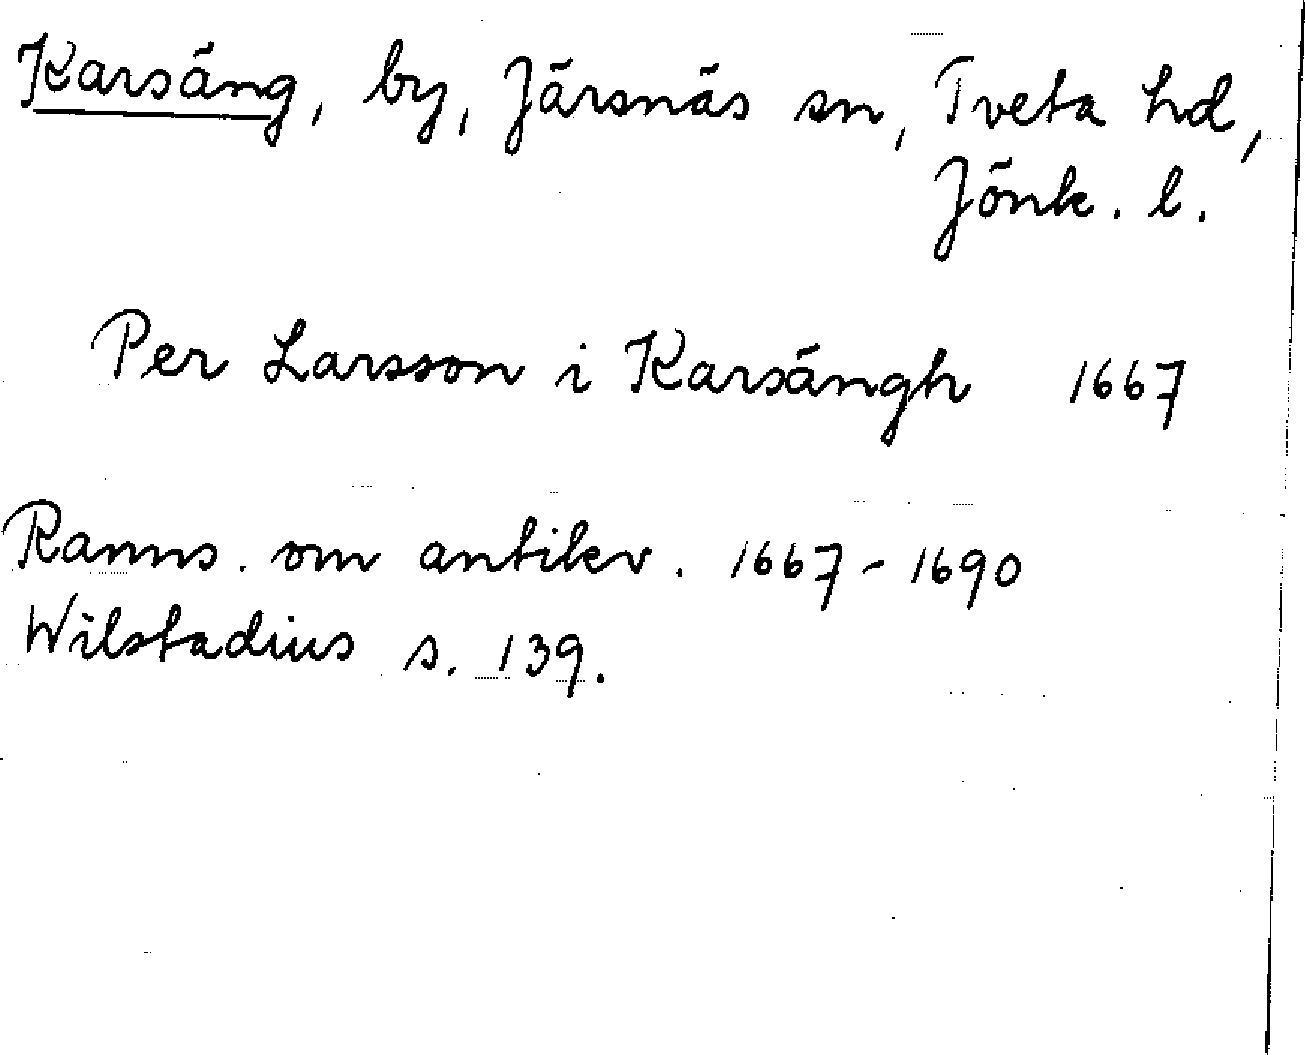 Karsäng, by, Järsnäs sn, Tveta hd,
Jönk. l.
Per Larsson i Karsängh 1667
Ranns. om antikv. 1667-1690
Wilstadius s. 139.